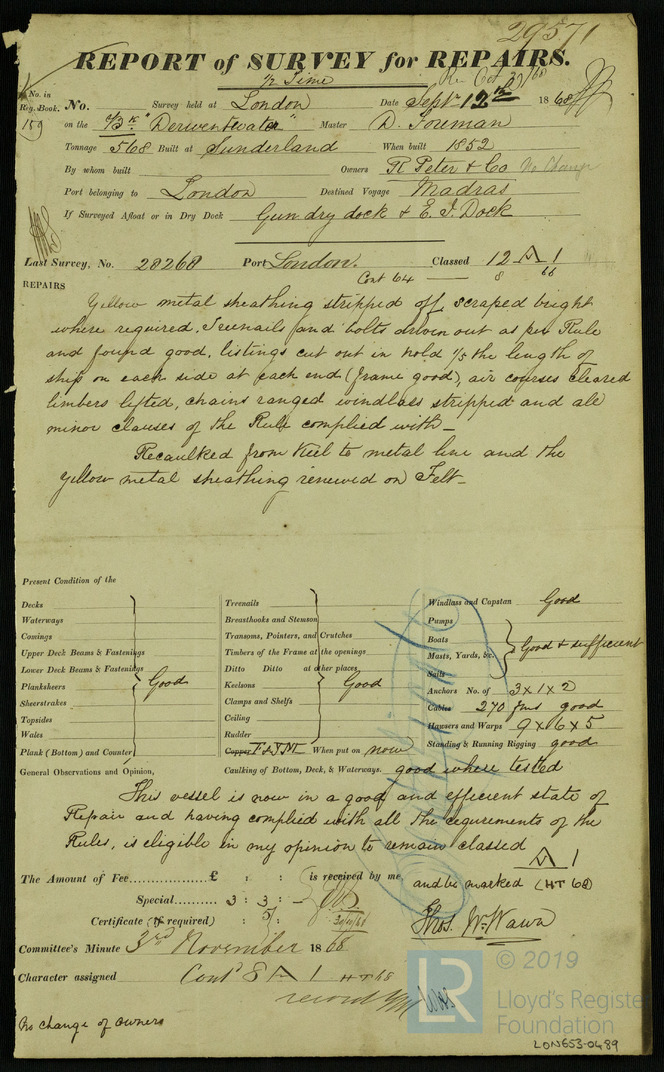 29571
REPORT of SURVEY for REPAIRS.
1/2 Time
No. in Reg. Book. No. Survey held at London Date Septr 12th 1868
159 on the "Derwentwater" Master D. Foreman
Tonnage 568 Built at Sunderland When built 1852
By whom built Owners R Peter & Co No Change
Port belonging to London Destined Voyage Madras
If Surveyed Afloat or in Dry Dock Gun dry dock & E. I. Dock
Last Survey, No. 28268 Port London. Classed 12 A 1
Cont 64 8 66
REPAIRS
Yellow metal sheathing stripped off, scraped bright
where required, Treenails and bolts driven out as per Rule
and found good, listings cut out in hold 1/5 the length of
ship on each side at each end (frame good), air courses cleared
limbers lifted, chains ranged windlass stripped and all
minor clauses of the Rule complied with_
Recaulked from Keel to metal line and the
yellow metal sheathing renewed on Felt_
Present Condition of the
Decks
Waterways
Comings
Upper Deck Beams & Fastenings
Lower Deck Beams & Fastenings
Planksheers Good
Sheerstrakes
Topsides
Wales
Plank (Bottom) and Counter
Treenails
Breasthooks and Stemson
Transoms, Pointers, and Crutches
Timbers of the Frame at the openings
Ditto Ditto at other places
Keelsons Good
Clamps and Shelfs
Ceiling
Rudder
Copper F & YM When put on now
Windlass and Capstan Good
Pumps
Boats
Masts, Yards, &c. Good & sufficient
Sails
Anchors No. of 3 x 1 x 2
Cables 270 fms good
Hawsers and Warps 9 x 6 x 5
Standing & Running Rigging good
General Observations and Opinion, Caulking of Bottom, Deck, & Waterways. good where tested
This vessel is now in a good and efficient state of
Repair and having complied with all the requirements of the
Rules, is eligible in my opinion to remain classed
A 1
The Amount of Fee £ : : is received by me, and be marked (HT 68)
Special 3 : 3 : -
Certificate (if required) : 5/ : Thos. Wm Wawn
Committee's Minute 3rd November 1868
Character assigned Contd 8 A 1 HT 68
No change of owners
© 2019
LR
Lloyd's Register
Foundation
LON653-0489